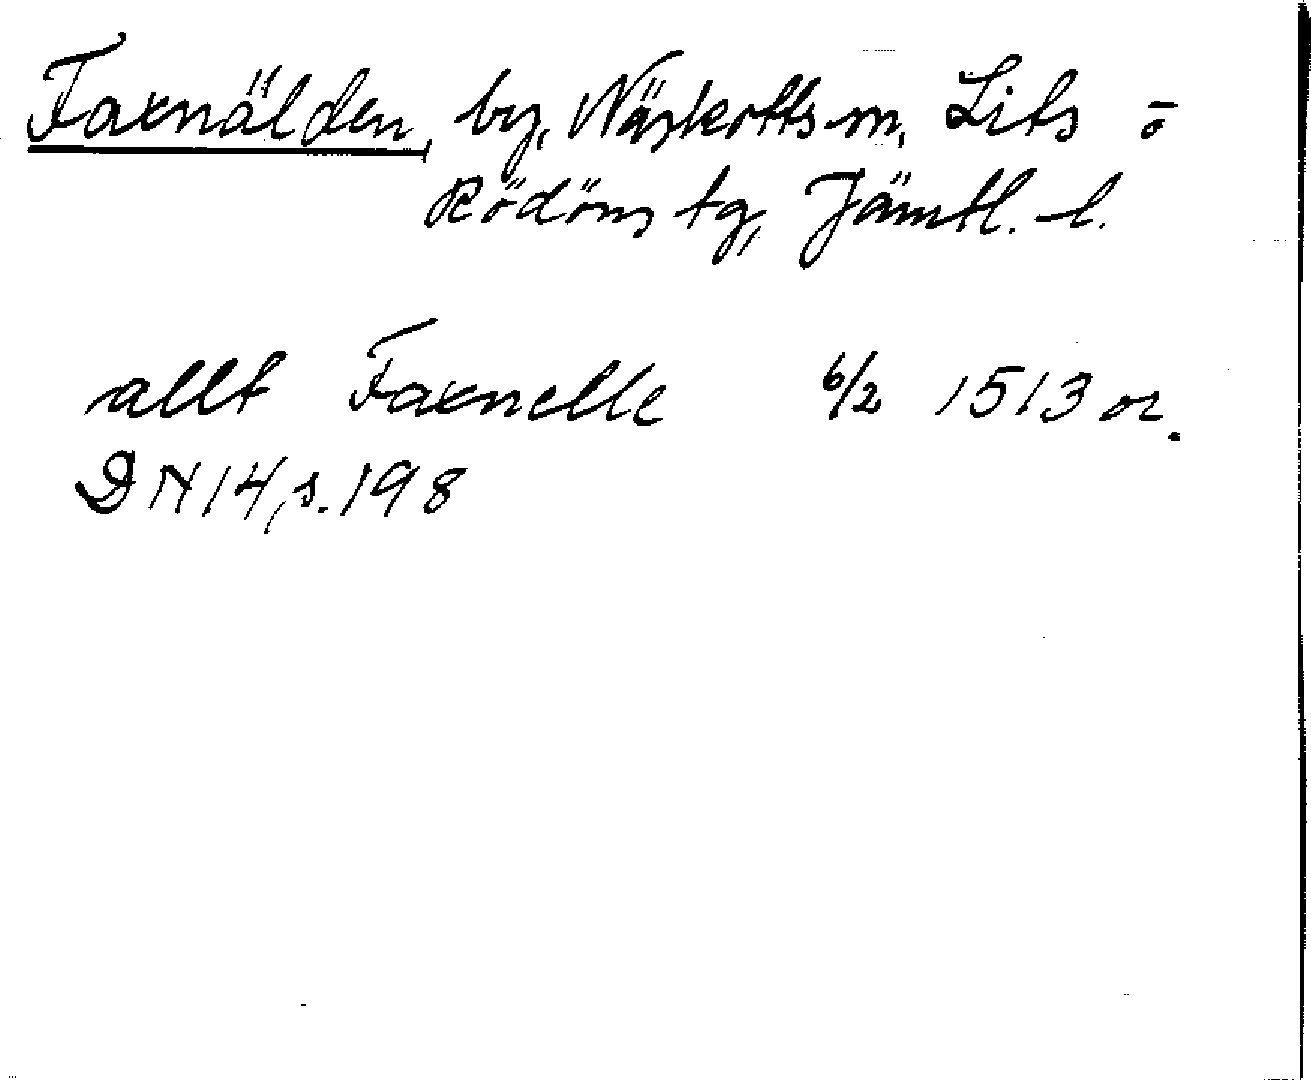 Faxnälden, by, Näskotts sn, Lits o
Rödöns tg, Jämtl. l.
allt Faxnelle 6/2 1513 or.
DN 14, s. 198